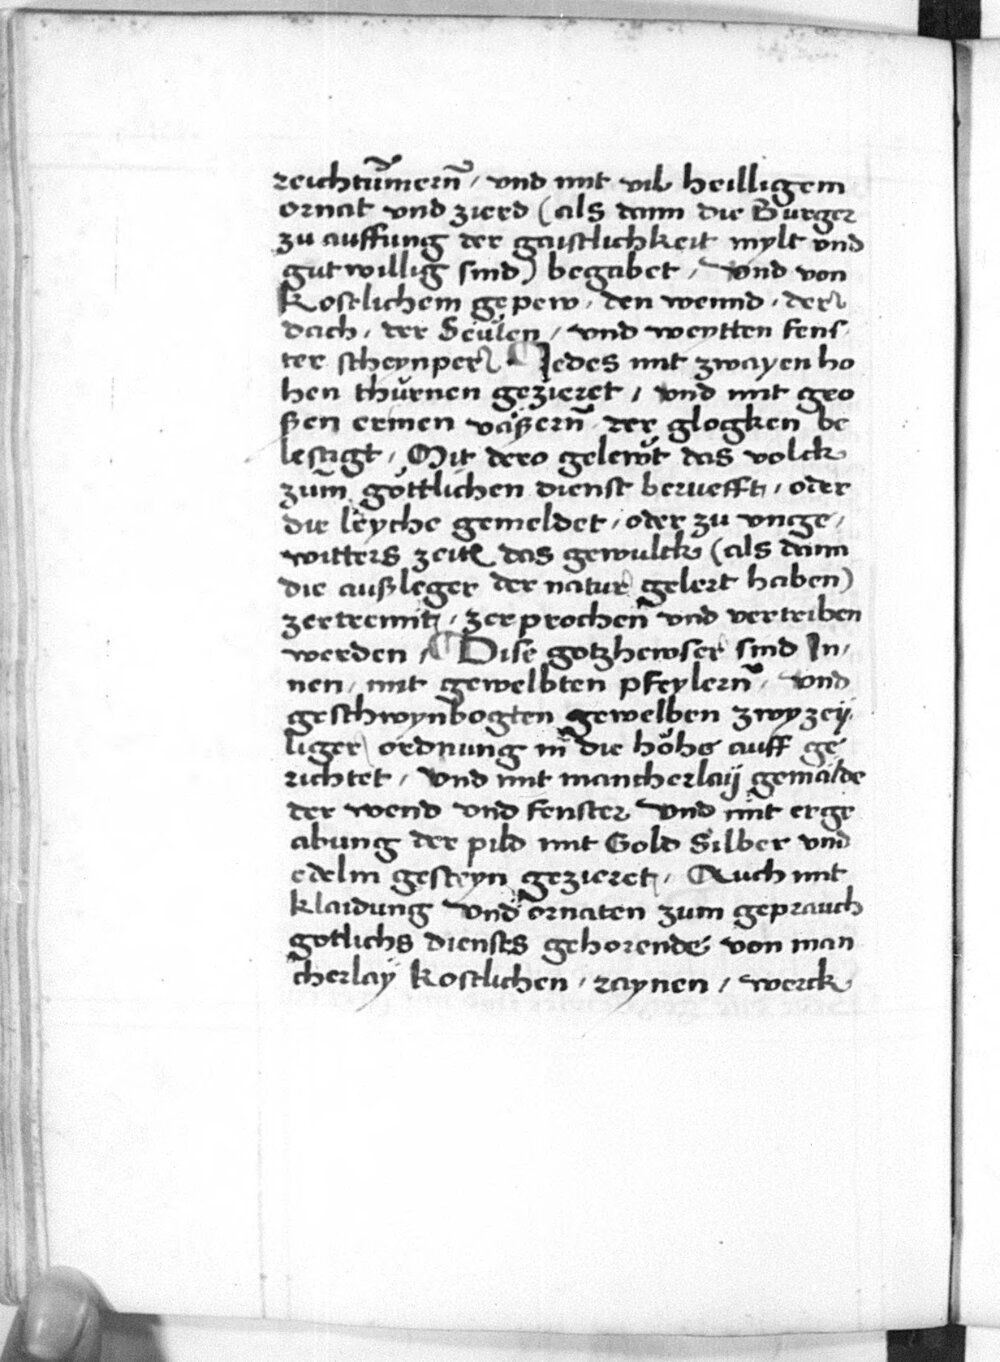 reichtũmern̄ / vnd mit vil heilligem
ornat vnd zierd (als dann die Burger
zu auffung der gaistlichkeit mylt vnd
gutwillig sind) begabet / Vnd von
kostlichem gepew / den wennd / der
dach / der Seülen / vnd weytten fens
ter scheynper ¶ Jedes mit zwayen ho
hen thürnen gezieret / vnd mit gro
ßen ermen väßern̄ der glogken be
lestigt / Mit dero gelewt das volck
zum göttlichen dienst beruefft / oder
die leyche gemeldet / oder zu vnge /
witters zeit das gewulck (als dann
die außleger der natur gelert haben)
zertrennt / zerprochen vnd vertriben
werden / ¶ Dise gotzhewser sind In /
nen / mit gewelbten pfeylern̄ / vnd
geschwynbogten gewelben zwyzeÿ
liger ordnung in die höhe auff ge
richtet / Vnd mit mancherlaÿ gemälde
der wend vnd fenster Vnd mit erge
abung der pild mit Gold Silber vnd
edelm gesteyn gezieret / Auch mit
klaidung Vnd ornaten zum geprauch
gotlichs diensts gehorende von man
cherlaÿ kostlichen / raynen / werck